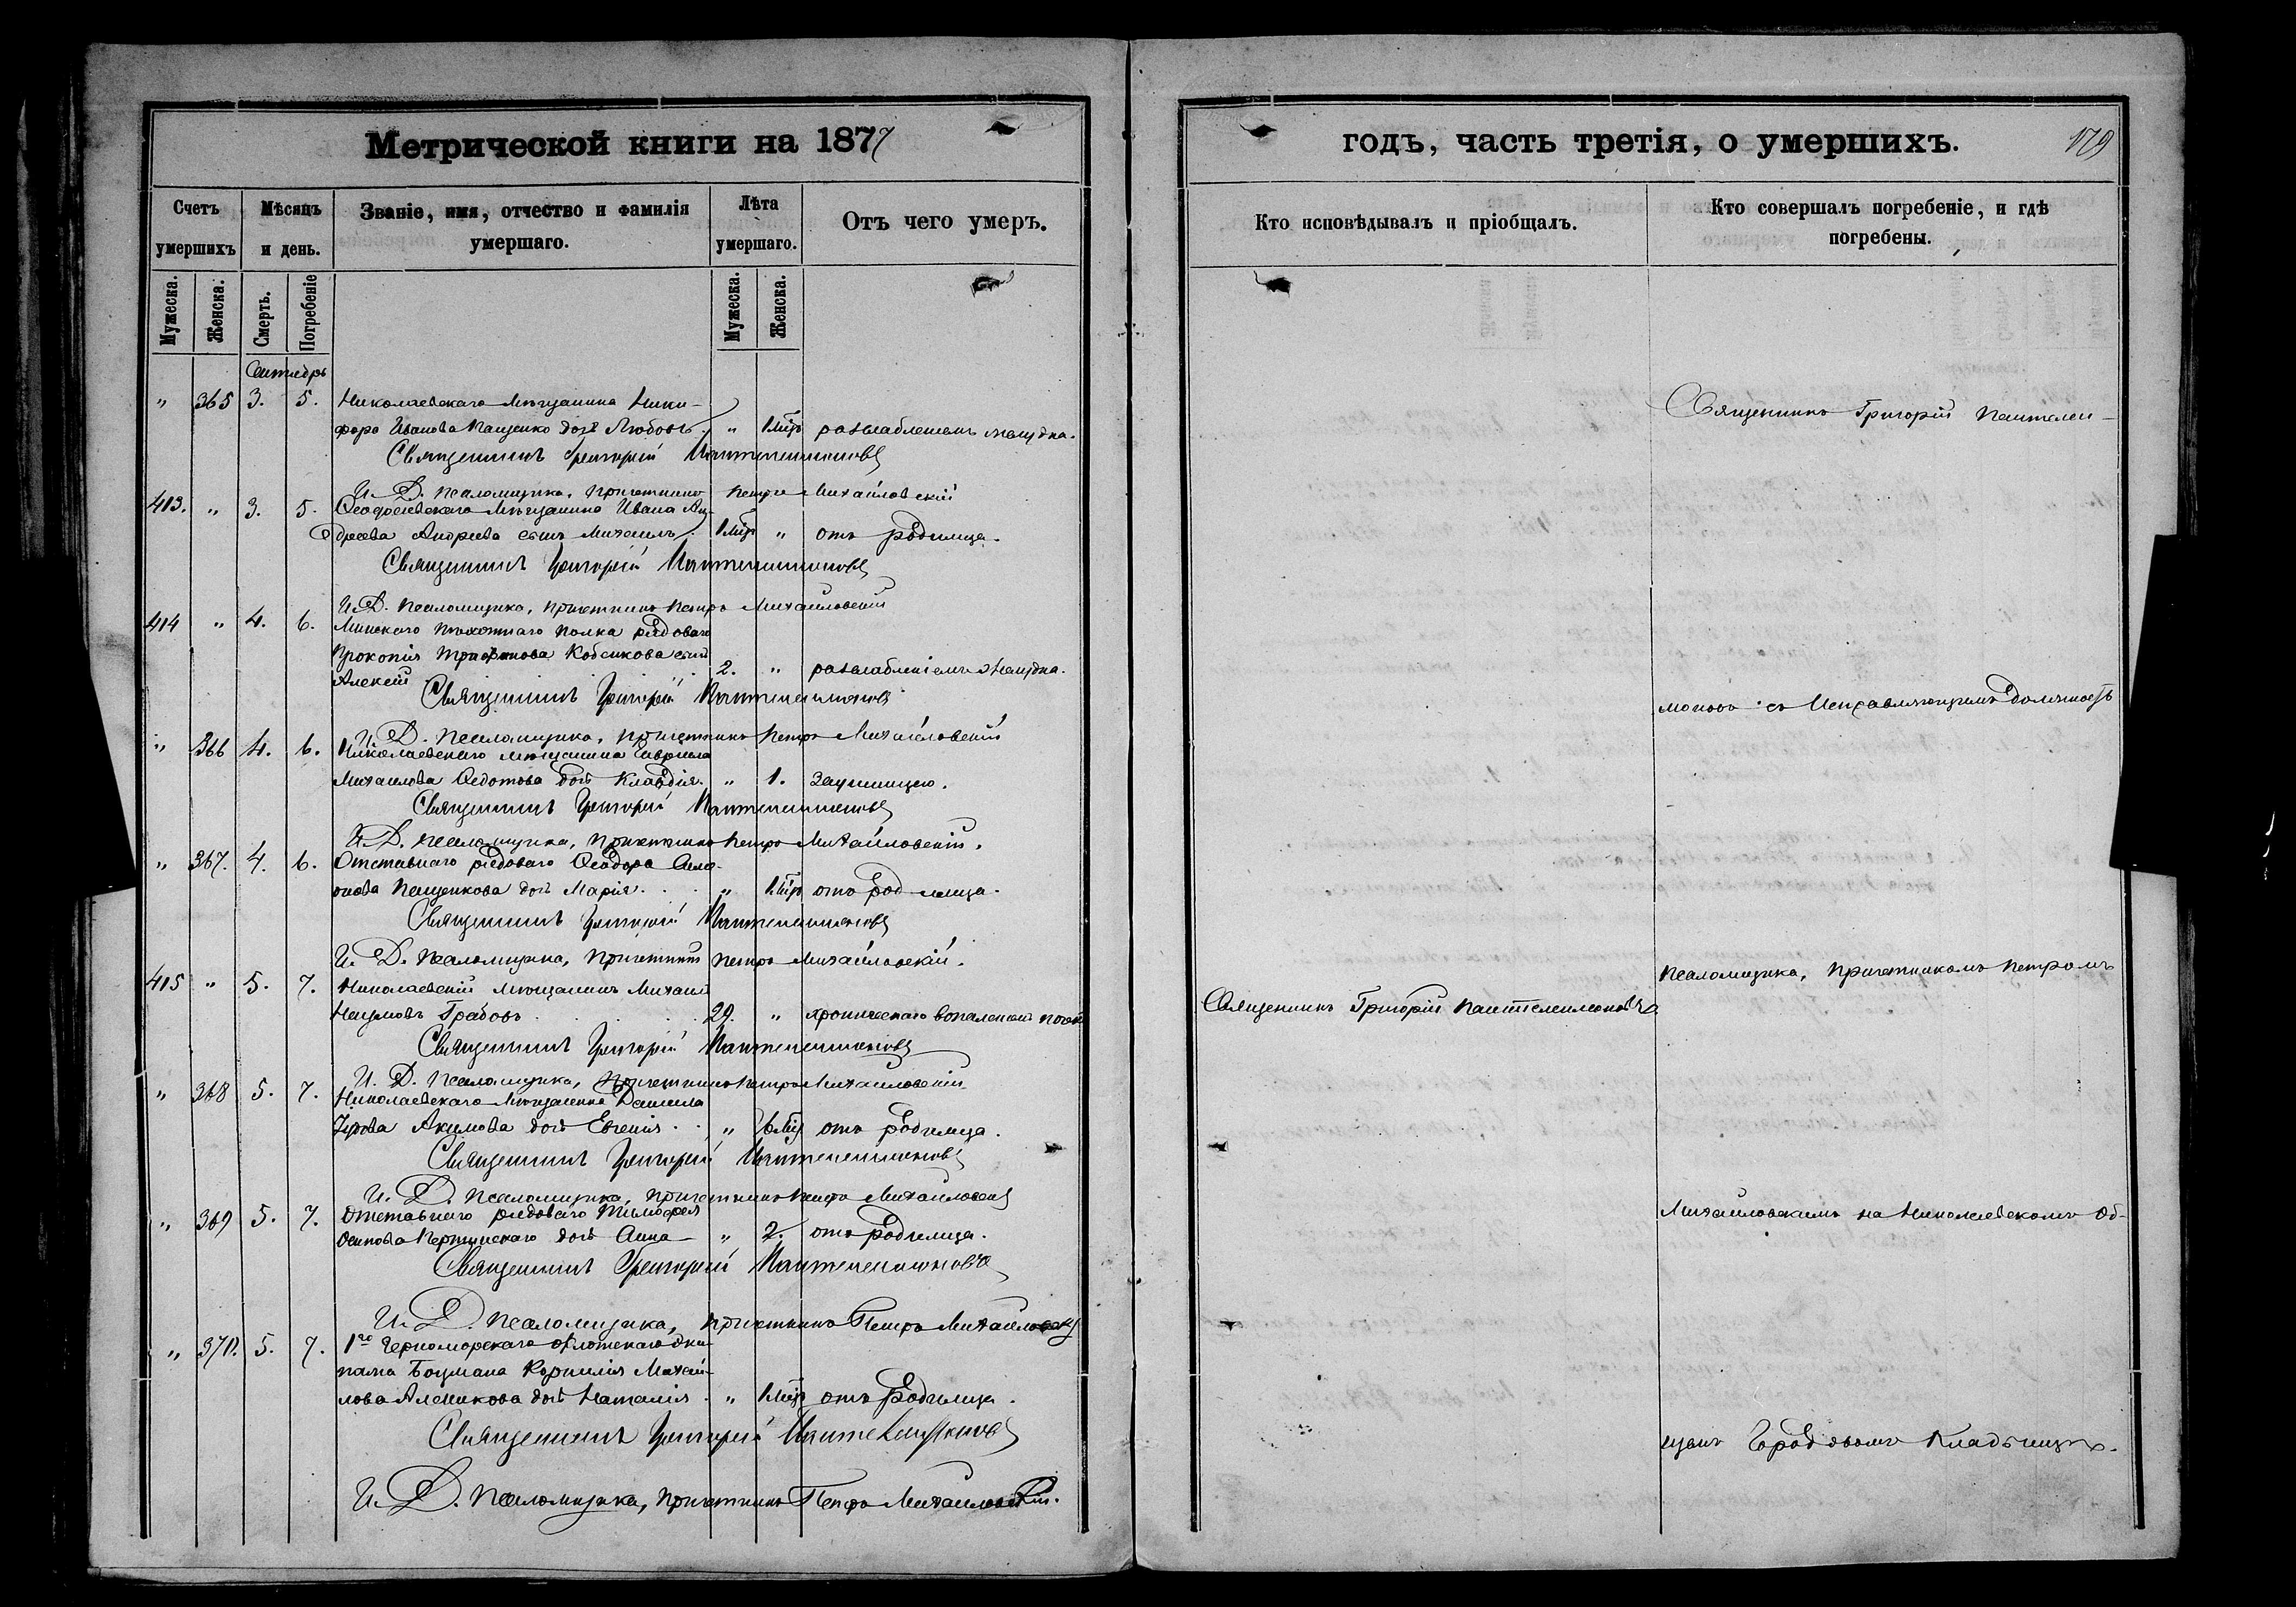 Метрической книги на 1877
Счетъ умершихъ
Мѣсяцъ и день.
Званіе, имя, отчество и фамилія умершаго.
Лѣта умершаго.
Отъ чего умеръ.
Мужеска.
Женска.
Смерть.
Погребеніе
Мужеска.
Женска.
Сентябрь
" 365 3. 5. Николаевскаго мѣщанина Ники-
фора Иванова Пащенко дочь Любовь. "
разслабленіемъ желудка.
Священникъ Григорій Пантелеимоновъ
И. Д. Псаломщика, причетникъ Петръ Михайловскій
413. " 3. 5. Ѳеодосіевскаго мѣщанина Ивана Ан-
дреева Андреева сынъ Михаилъ. " отъ родимца.
Священникъ Григорій Пантелеимоновъ
И. Д. Псаломщика, причетникъ Петръ Михайловскій
414 " 4. 6. Минскаго пѣхотнаго полка рядоваго
Прокопія сынъ
Алексій 2. " разслабленіемъ желудка.
Священникъ Григорій Пантелеимоновъ
И. Д. Псаломщика, причетникъ Петръ Михайловскій
" 366 4. 6. Николаевскаго мѣщанина Гавріила
Михаилова Ѳедотова дочь Клавдія. " 1. заушницею.
Священникъ Григорій Пантелеимоновъ
И. Д. Псаломщика, причетникъ Петръ Михайловскій.
" 367. 4. 6. Отставнаго рядоваго Ѳеодора
Пащенкова дочь Марія. " отъ родимца.
Священникъ Григорій Пантелеимоновъ
И. Д. Псаломщика, причетникъ Петръ Михайловскій.
415 " 5. 7. Николаевскій мѣщанинъ Михаилъ
Наумовъ Грабовъ 29. " хроническаго воспаленія почекъ
Священникъ Григорій Пантелеимоновъ
И. Д. Псаломщика, причетникъ Петръ Михайловскій
" 368 5. 7. Николаевскаго мѣщанина Даніила
Акимова дочь Евгенія. " отъ родимца.
Священникъ Григорій Пантелеимоновъ
И. Д. Псаломщика, причетникъ Петръ Михайловскій
" 369 5. 7. Отставнаго рядоваго Тимоѳея
Осипова дочь Анна " 2. отъ родимца.
Священникъ Григорій Пантелеимоновъ
И. Д. Псаломщика, причетникъ Петръ Михайловскій
" 370. 5. 7. 1го Черноморскаго флотскаго эки-
пажа Боцмана Корнилія Михай-
лова Аленикова дочь Наталія. " отъ родимца.
Священникъ Григорій Пантелеимоновъ
И. Д. Псаломщика, причетникъ Петръ Михайловскій.
годъ, часть третія, о умершихъ.
179
Кто исповѣдывалъ и пріобщалъ.
Кто совершалъ погребеніе, и гдѣ погребены.
Священникъ Григорій Пантелеи-
моновъ съ Исправляющимъ должность
Псаломщика, причетникомъ Петромъ
Священникъ Григорій Пантелеимоновъ
Михайловскимъ на Николаевскомъ об-
щемъ городскомъ кладбищѣ.